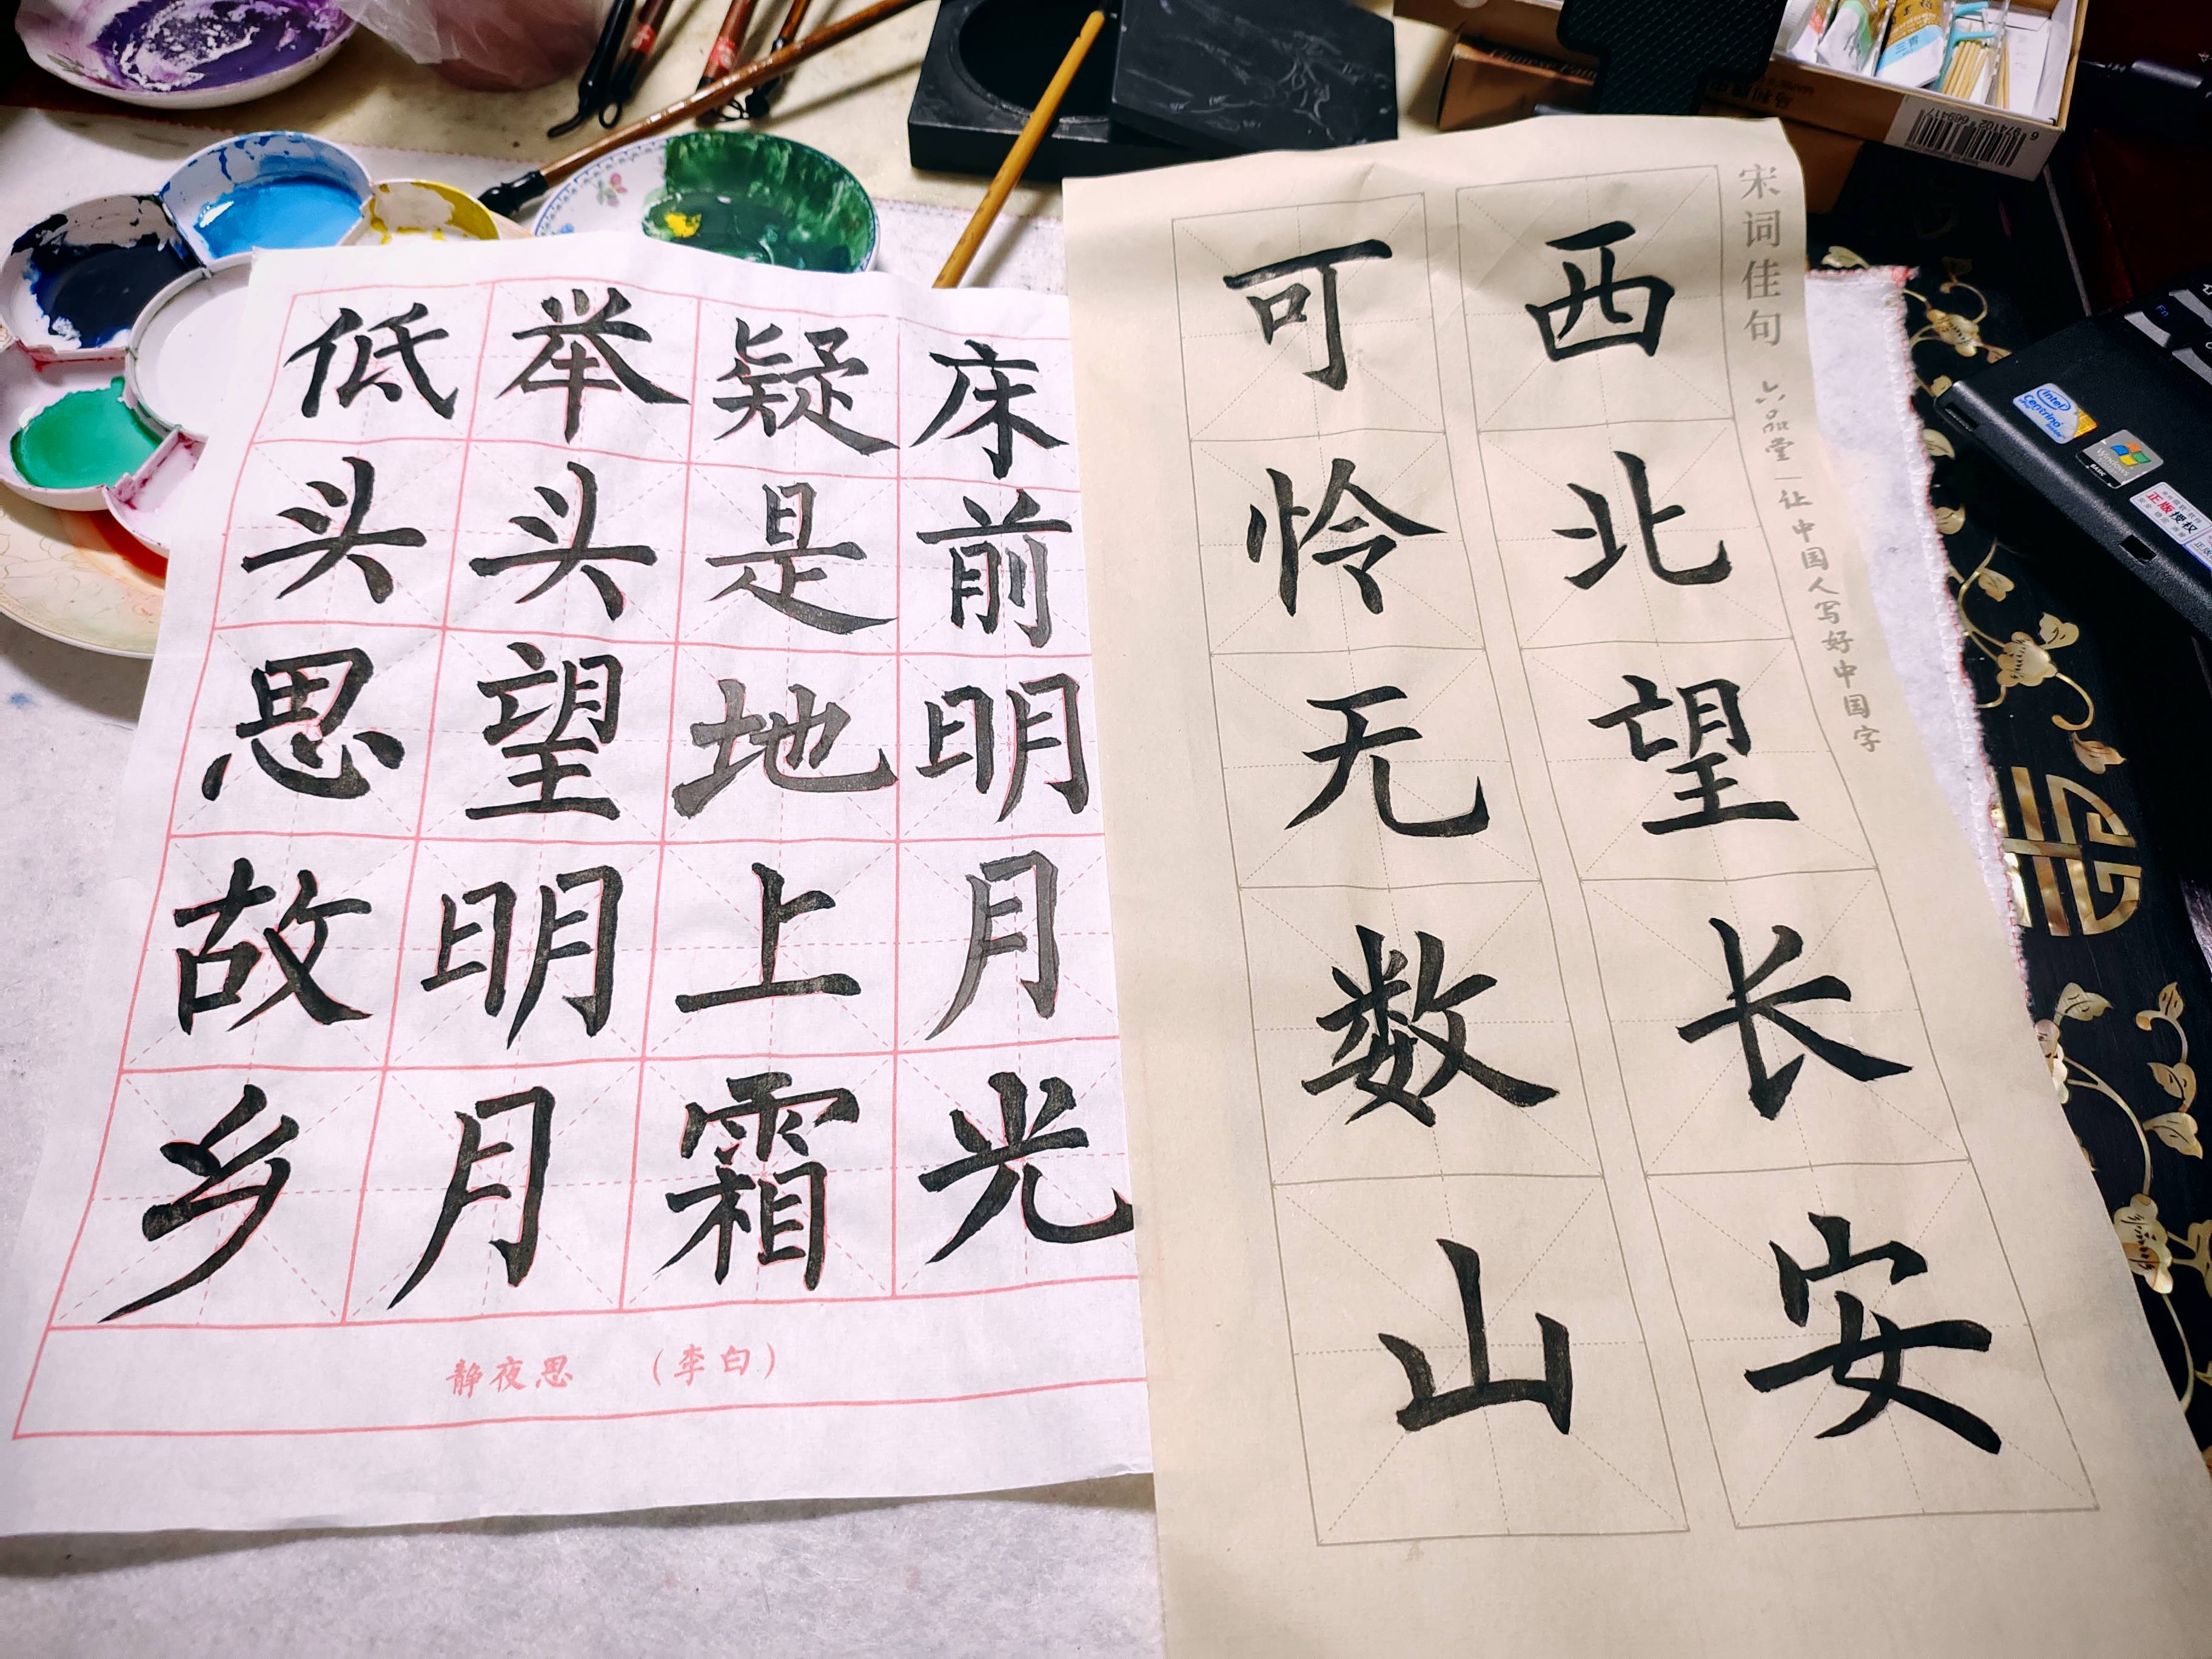 床前明月光
疑是地上霜
举头望明月
低头思故乡
静夜思 （李白）
宋词佳句 六品堂—让中国人写好中国字
西北望长安
可怜无数山
intel
Centrino
Windows
BASIC
正版授权
Fn